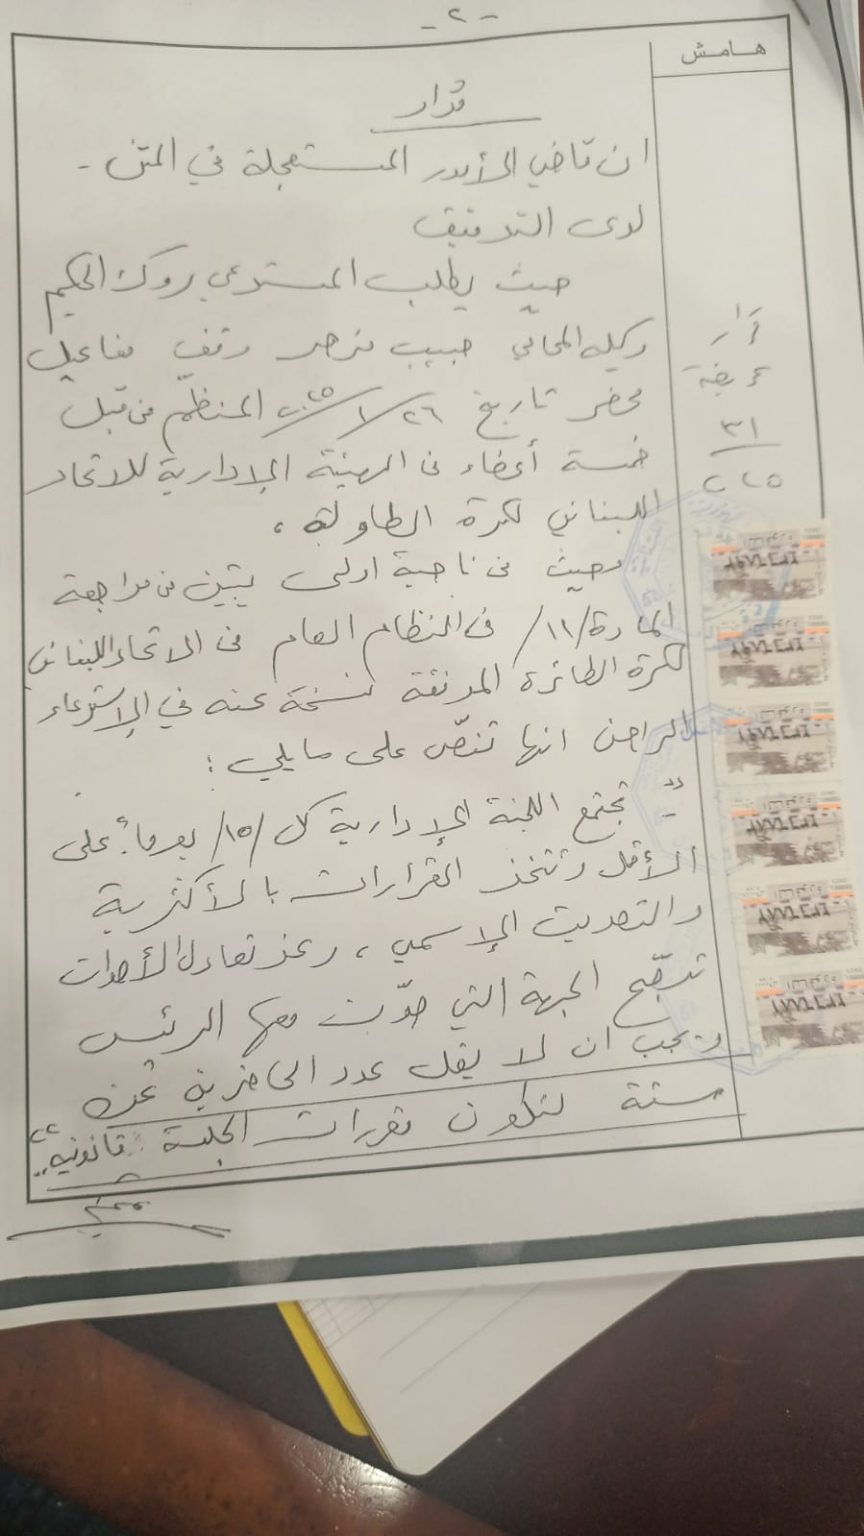 - ٢ -
هامش
قرار
ان قاضي الأمور المستعجلة في المتن -
لدى التدقيق
حيث يطلب المستدعي روك الحكيم
وكيله المحامي حبيب مزهر وقف مفاعيل
محضر تاريخ ٢٦/١/٢٠٢٥ المنظّم من قبل
خمسة أعضاء من الهيئة الإدارية للاتحاد
اللبناني لكرة الطاولة ،
وحيث من ناحية اولى يتبين من مراجعة
المادة /١١/ من النظام العام من الاتحاد اللبناني
لكرة الطائرة المرفقة نسخة عنه في الاستدعاء
الراهن انها تنصّ على ما يلي :
" - تجتمع اللجنة الإدارية كل /١٥/ يوماً على
الأقل وتتخذ القرارات بالأكثرية
والتصويت الإسمي ، وعند تعادل الأصوات
ترجّح الجهة التي صوّت معها الرئيس
ويجب ان لا يقل عدد الحاضرين عن
ستة لتكون مقررات الجلسة قانونية "
قرار
عريضة
٣١
٢٠٢٥